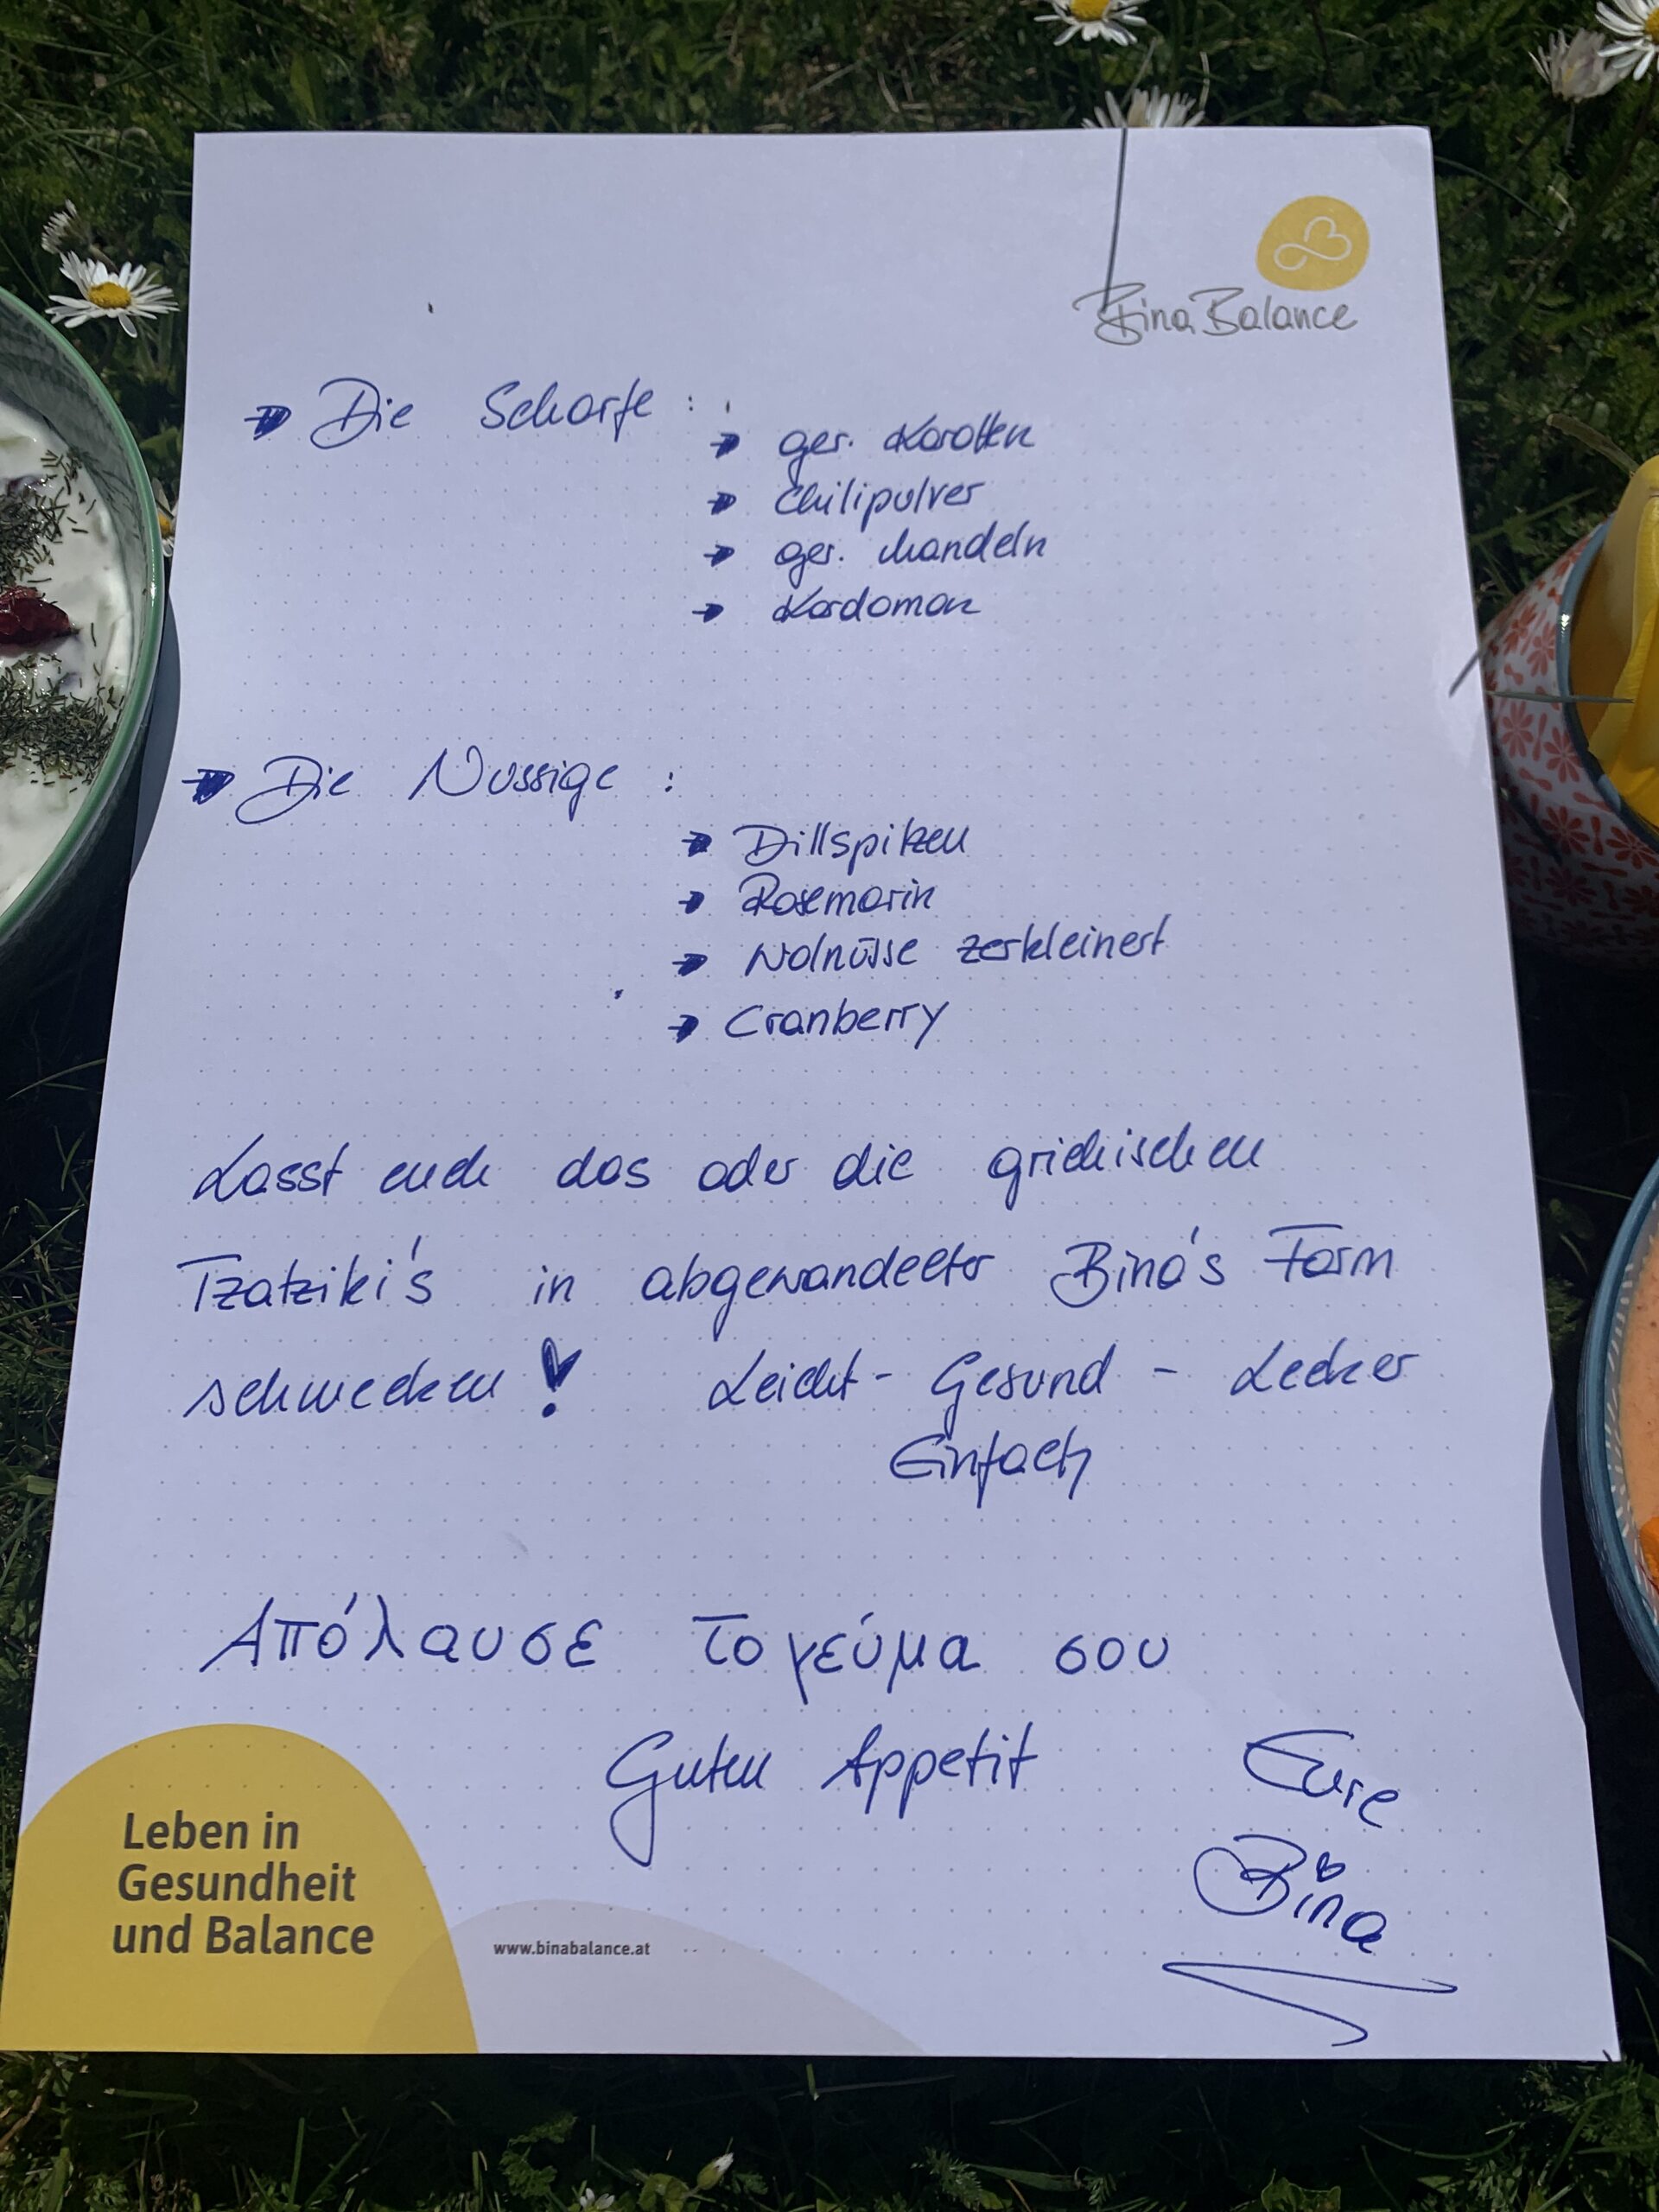 Bina Balance
Die Scharfe :
ger. Karotten
Chilipulver
ger. Mandeln
Kardamon
Die Nussige :
Dillspitzen
Rosemarin
Walnüsse zerkleinert
Cranberry
Lasst euch das oder die grichischen
Tzatziki's in abgewandelter Bina's Form
schmecken! Leicht - Gesund - Lecker
Einfach
Απόλαυσε το γεύμα σου
Guten Appetit Eure
Bina
Leben in
Gesundheit
und Balance
www.binabalance.at